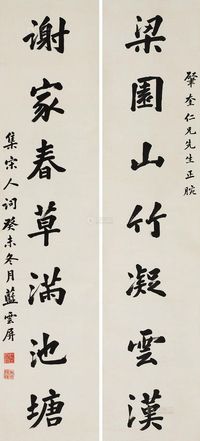 肇奎仁兄先生正腕
梁園山竹凝雲漢
謝家春草滿池塘
集宋人詞癸未冬月藍雲屏